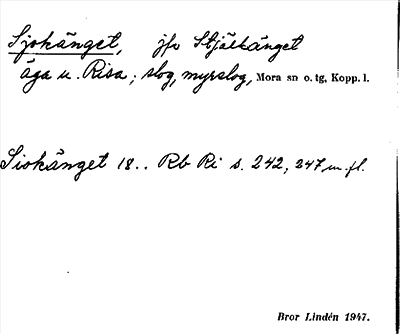 Sjokänget, jfr Stjälkänget
äga u. Risa; slog, myrslog, Mora sn o. tg, Kopp. l.
Siokänget 18.. Rb Ri s. 242, 247 m. fl.
Bror Lindén 1947.